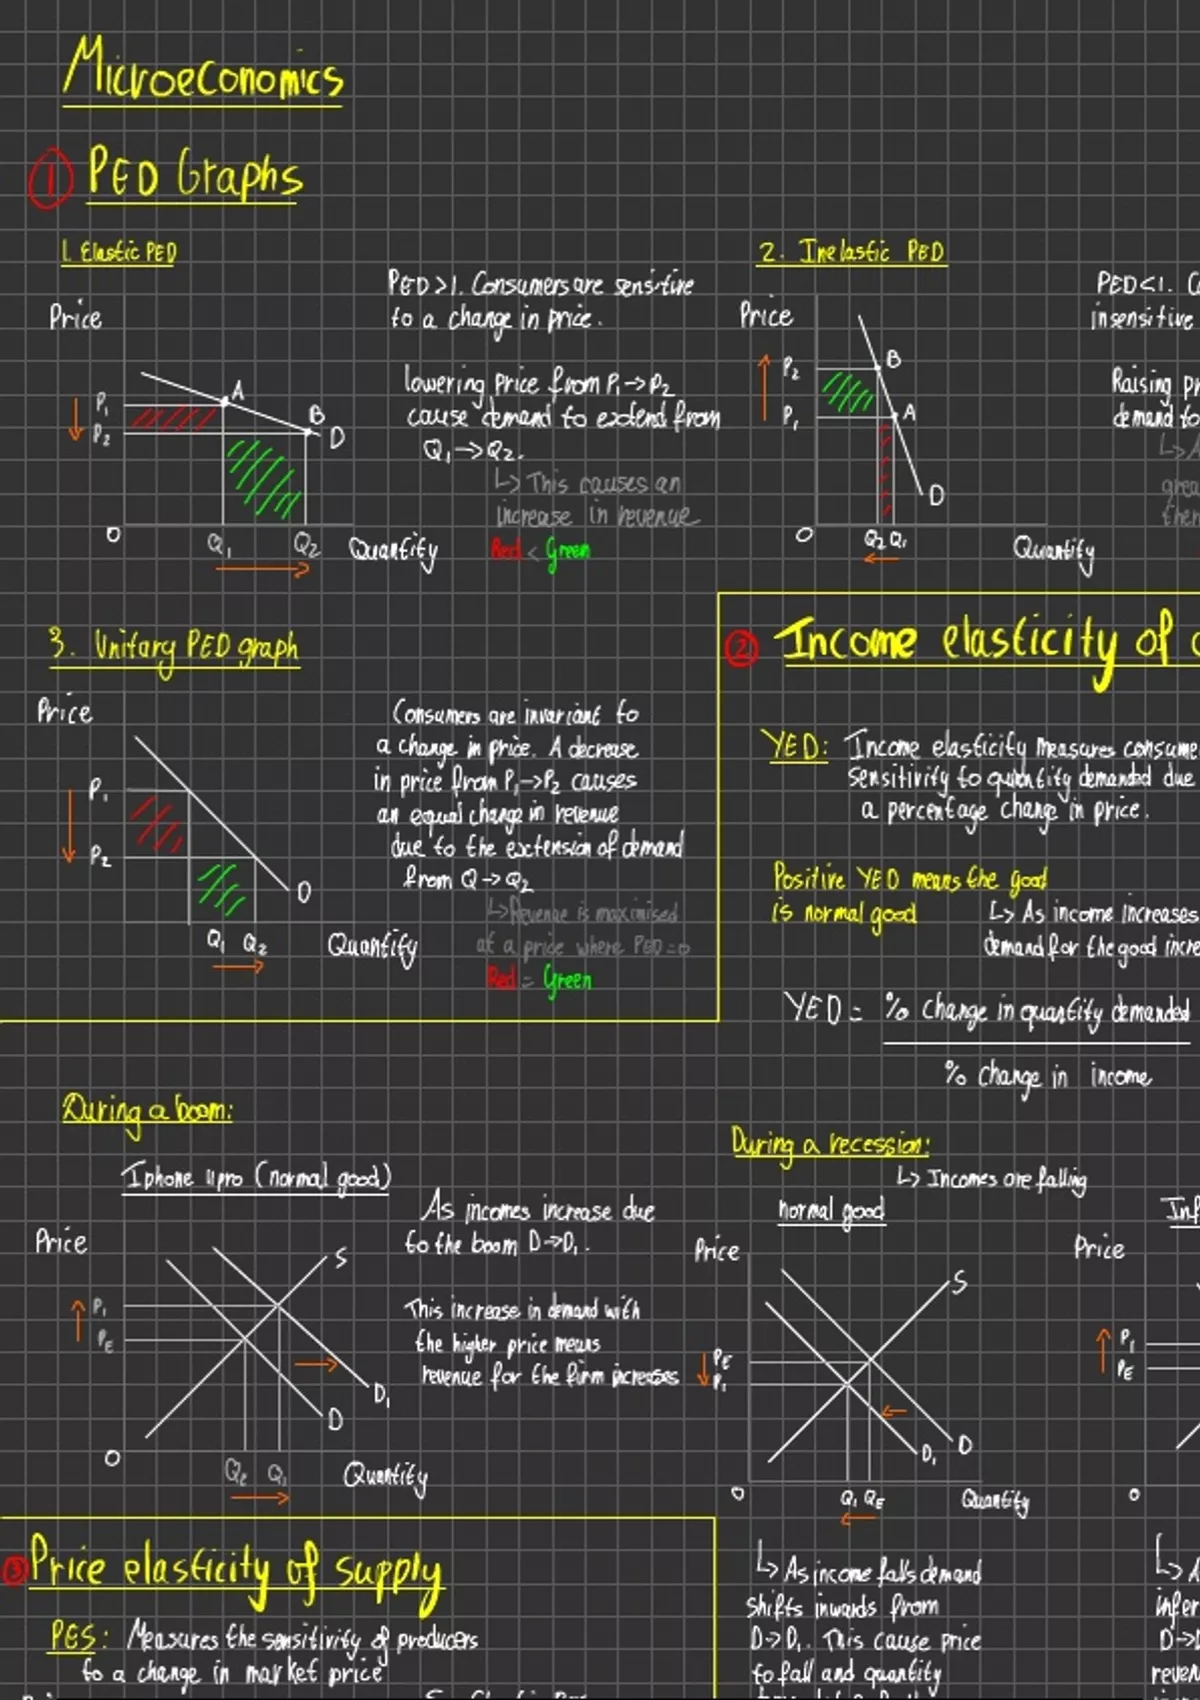 Microeconomics
1 PED Graphs
1. Elastic PED
Price
P₁
P₂
A
B
D
O
Q₁
Q₂
Quantity
PED>1. Consumers are sensitive
to a change in price.
lowering price from P₁→P₂
cause demand to extend from
Q₁→Q₂.
↳ This causes an
increase in revenue
Red < Green
2. Inelastic PED
Price
P₂
P₁
B
A
D
O
Q₂ Q₁
Quantity
PED<1. C
insensitive
Raising pr
demand to
↳ A
grea
ther
3. Unitary PED graph
Price
P₁
P₂
D
Q₁ Q₂
Quantity
Consumers are invariant to
a change in price. A decrease
in price from P₁→P₂ causes
an equal change in revenue
due to the extension of demand
from Q→Q₂
↳ Revenue is maximised
at a price where PED=0
Red = Green
2 Income elasticity of
YED: Income elasticity measures consume
sensitivity to quantity demanded due
a percentage change in price.
Positive YED means the good
is normal good
↳ As income increases
demand for the good incre
YED = % change in quantity demanded
% change in income
During a boom:
Iphone 11 pro (normal good)
Price
P₁
PE
S
D₁
D
O
Qe Q₁
Quantity
As incomes increase due
to the boom D→D₁.
This increase in demand with
the higher price means
revenue for the firm increases
During a recession:
↳ Incomes are falling
normal good
Price
PE
P₁
S
D
D₁
O
Q₁ QE
Quantity
↳ As income falls demand
shifts inwards from
D→D₁. This cause price
to fall and quantity
Inf
Price
P₁
PE
O
↳ A
infer
D→D
reven
3 Price elasticity of supply
PES: Measures the sensitivity of producers
to a change in market price